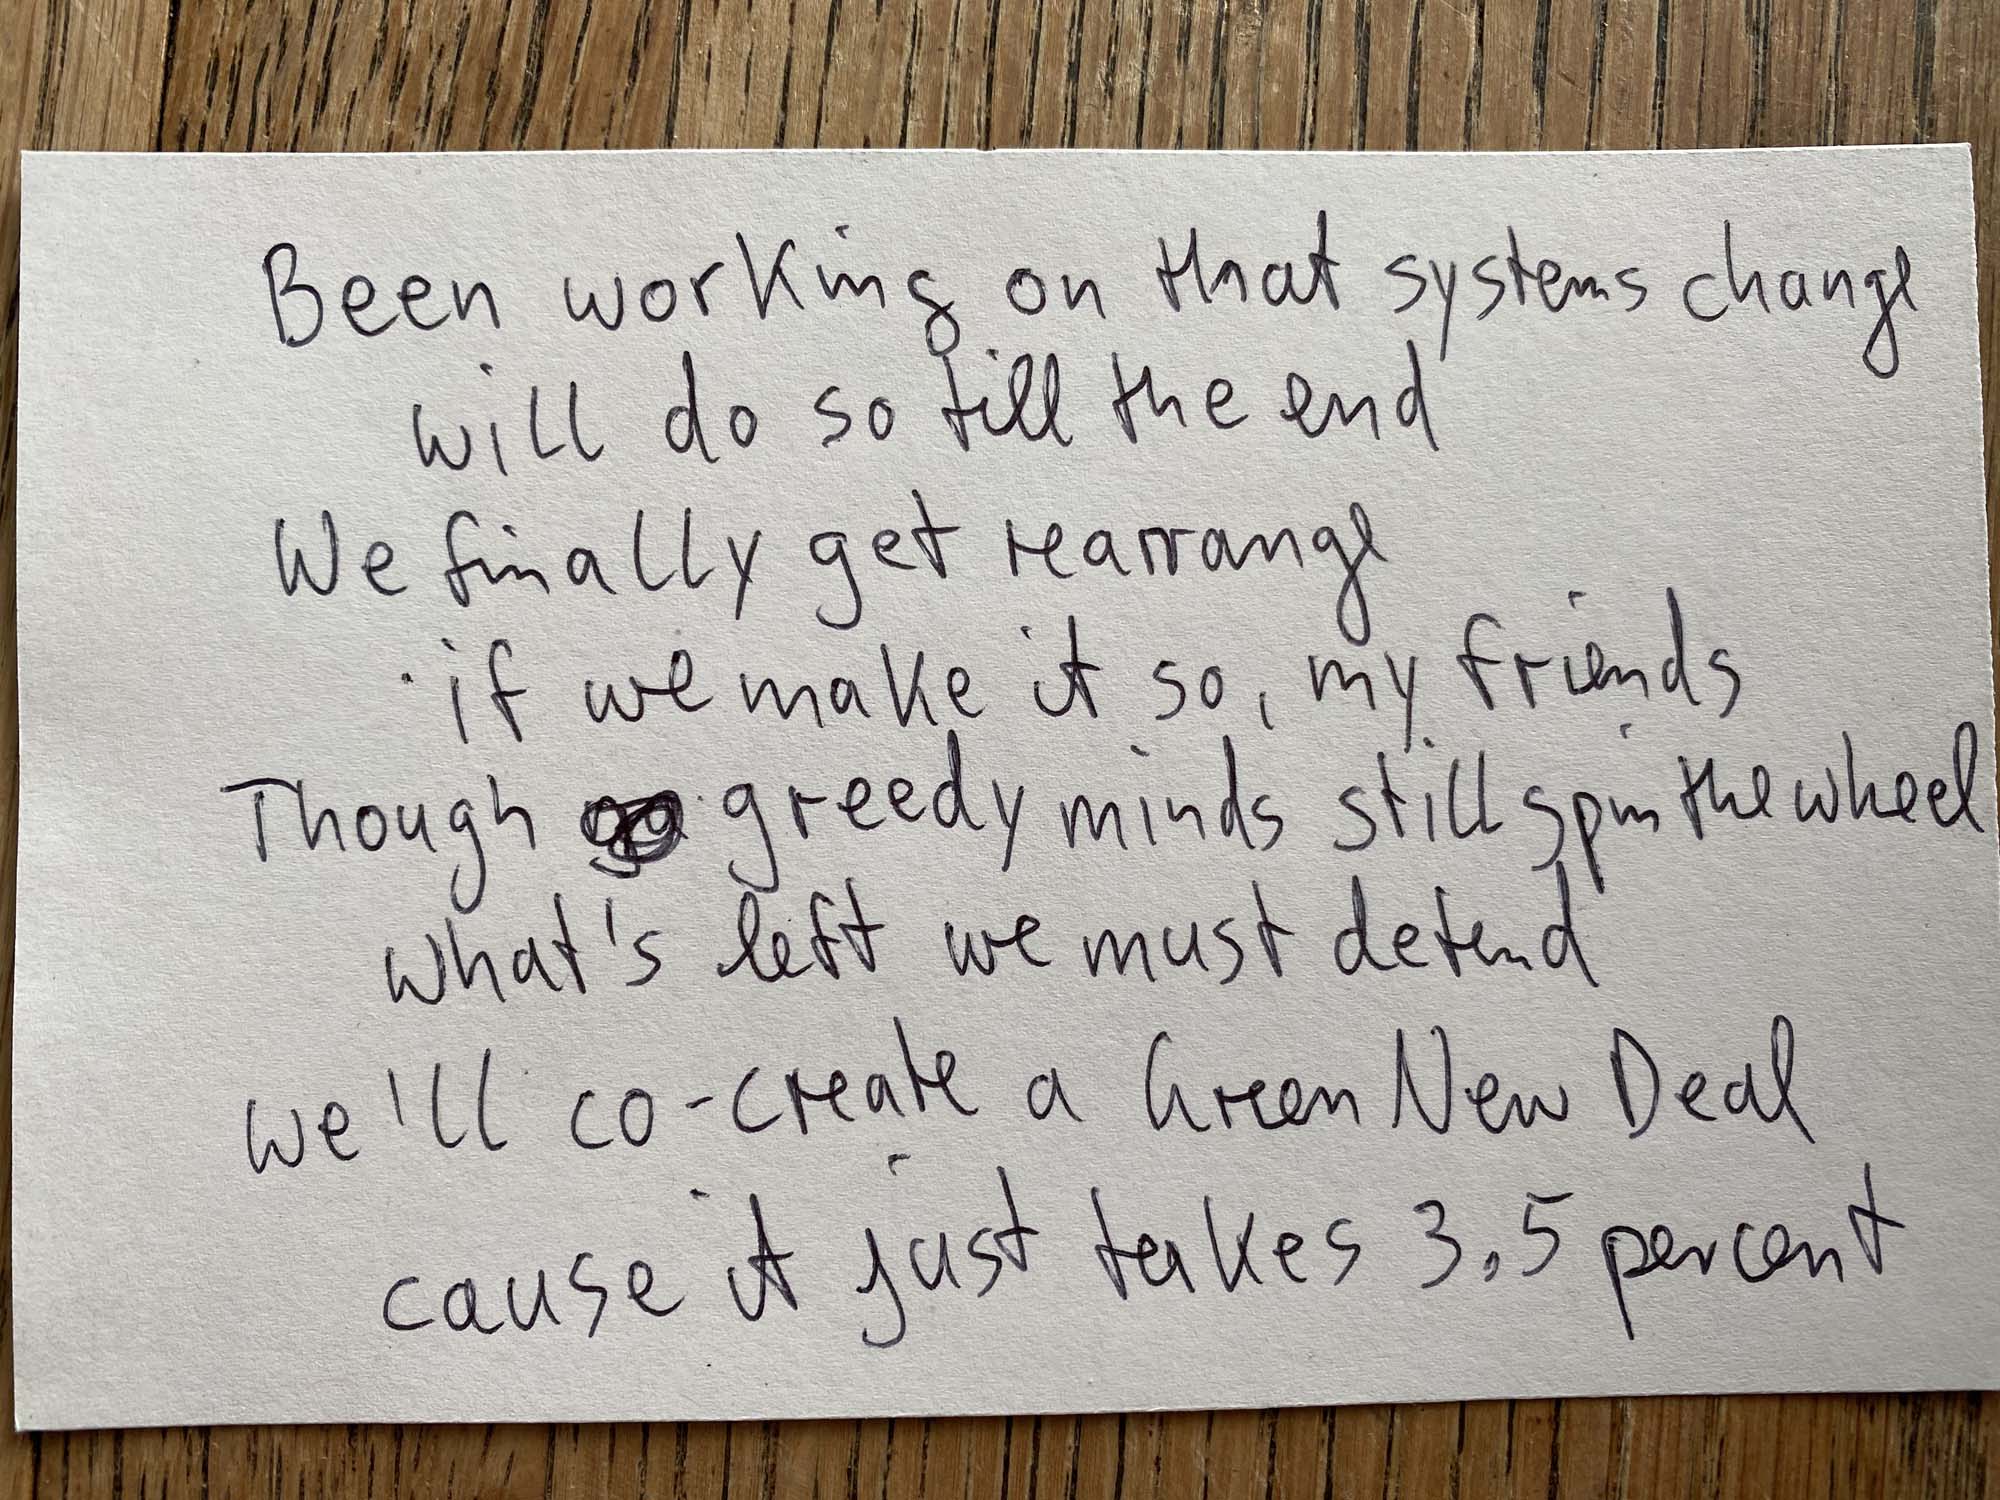 Been working on that systems change
will do so till the end
We finally get rearrange
if we make it so, my friends
Though greedy minds still spin the wheel
what's left we must defend
we'll co-create a Green New Deal
cause it just takes 3.5 percent